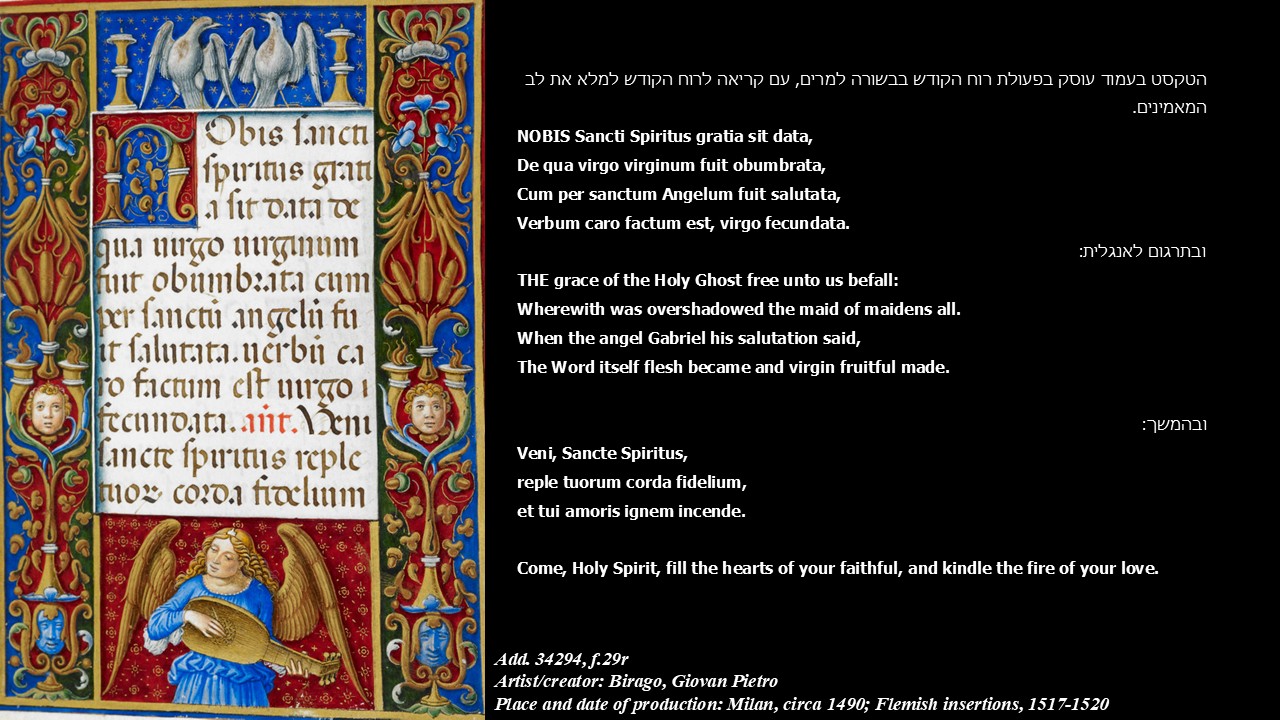 Obis sancti
spiritus grati
a sit data de
qua uirgo uirginum
fuit obumbrata cum
per sanctū angelū fu
it salutata. uerbū ca
ro factum est uirgo i
fecundata. añt. Veni
sancte spiritus reple
tuoꝝ corda fidelium
הטקסט בעמוד עוסק בפעולת רוח הקודש בבשורה למרים, עם קריאה לרוח הקודש למלא את לב
המאמינים.
NOBIS Sancti Spiritus gratia sit data,
De qua virgo virginum fuit obumbrata,
Cum per sanctum Angelum fuit salutata,
Verbum caro factum est, virgo fecundata.
ובתרגום לאנגלית:
THE grace of the Holy Ghost free unto us befall:
Wherewith was overshadowed the maid of maidens all.
When the angel Gabriel his salutation said,
The Word itself flesh became and virgin fruitful made.
ובהמשך:
Veni, Sancte Spiritus,
reple tuorum corda fidelium,
et tui amoris ignem incende.
Come, Holy Spirit, fill the hearts of your faithful, and kindle the fire of your love.
Add. 34294, f.29r
Artist/creator: Birago, Giovan Pietro
Place and date of production: Milan, circa 1490; Flemish insertions, 1517-1520